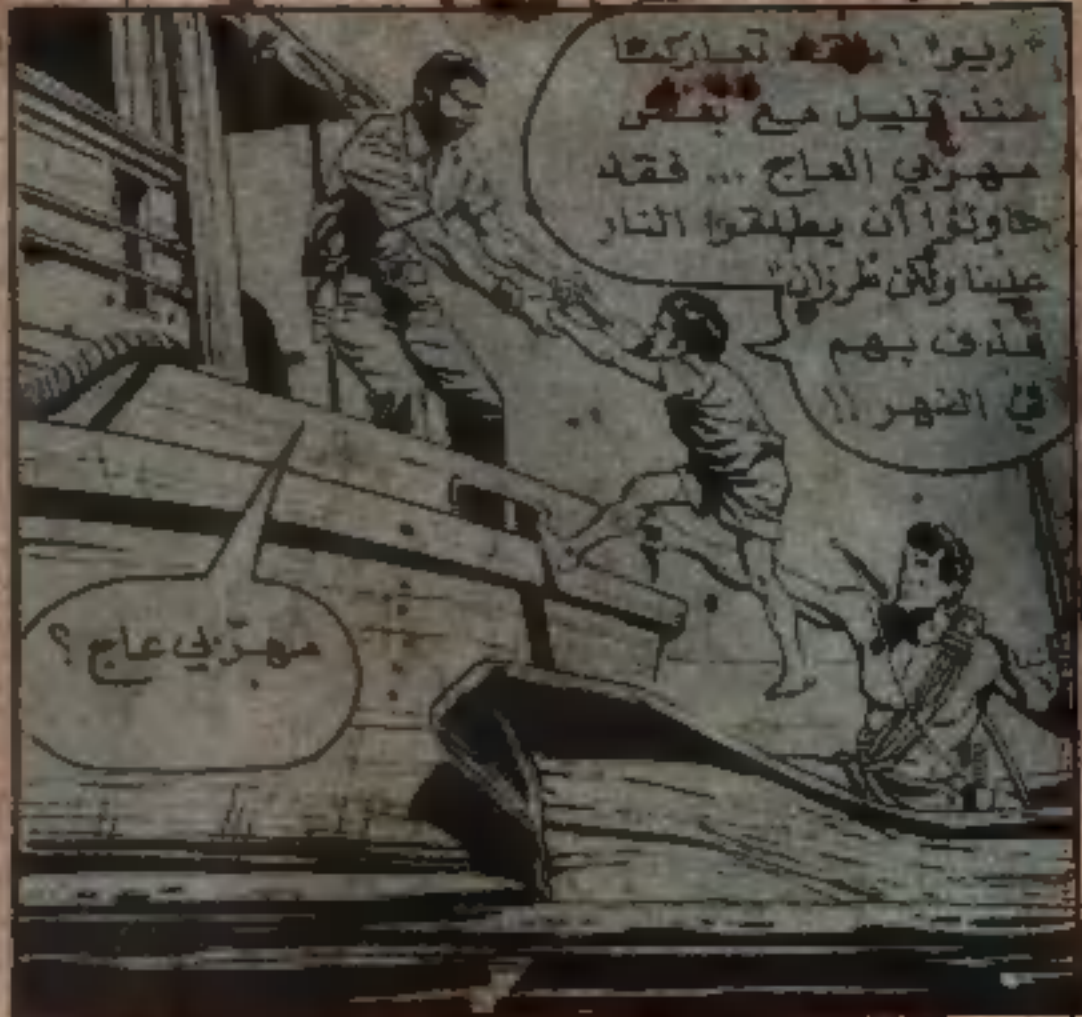 "ريو" ! لقد تعاركنا
منذ قليل مع بعض
مهربي العاج ... فقد
حاولوا أن يطلقوا النار
علينا ولكن طرزان"
قذف بهم
في النهر !!
مهرّبي عاج ؟